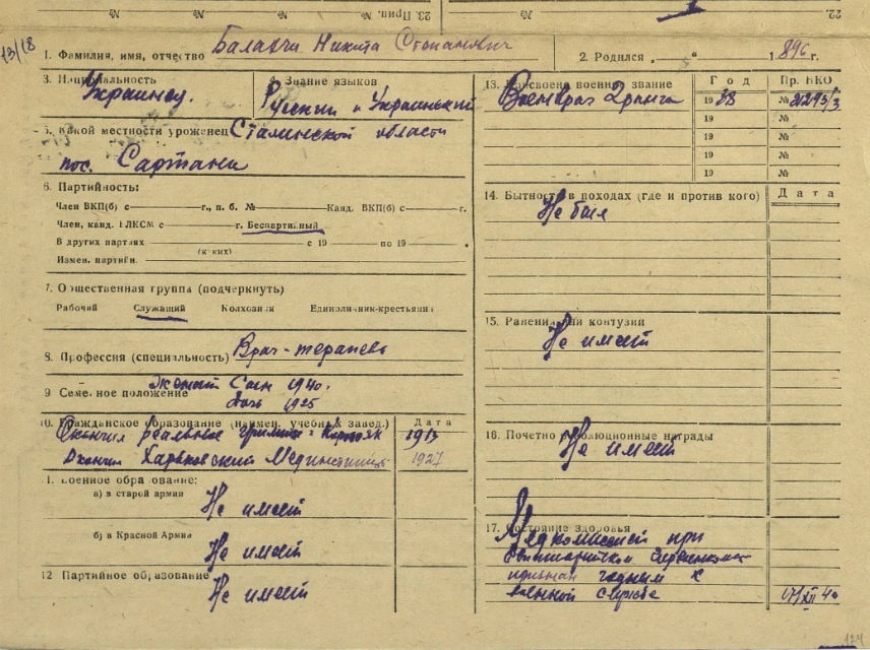 № № 23. Прик. №
22.
13/18
1. Фамилия, имя, отчество Балакчи Никита Степанович
2. Родился „ — “ 1896 г.
3. Национальность
Украинец.
4. Знание языков
Русский и Украинский
5. Какой местности уроженец Сталинской области
пос. Сартана
6. Партийность:
Член ВКП(б) с — г., п. б. № — Канд. ВКП(б) с — г.
Член, канд. ВЛКСМ с — г. Беспартийный
В других партиях — с 19 — по 19 — .
(каких)
Измен. партийн.
7. Общественная группа (подчеркнуть)
Рабочий Служащий Колхозник Единоличник-крестьянин
8. Профессия (специальность) Врач-терапевт
9 Семейное положение женат Сын 1940.
дочь 1925
10. Гражданское образование (наимен. учебн. завед.) Дата
Окончил реальное 1917
Окончил Харьковский Мединститут 1927
11. Военное образование:
а) в старой армии
Не имеет
б) в Красной Армии
Не имеет
12 Партийное образование
Не имеет
13. Присвоено военное звание Год Пр. НКО
Военврач 2 ранга 1938 № 2293/3
19 №
19 №
19 №
19 №
14. Бытность в походах (где и против кого) Дата
Не был
15. Ранения или контузии
Не имеет
16. Почетно-революционные награды
Не имеет
17. Состояние здоровья
Медкомиссией при
признан годным к
военной службе XII 40
124